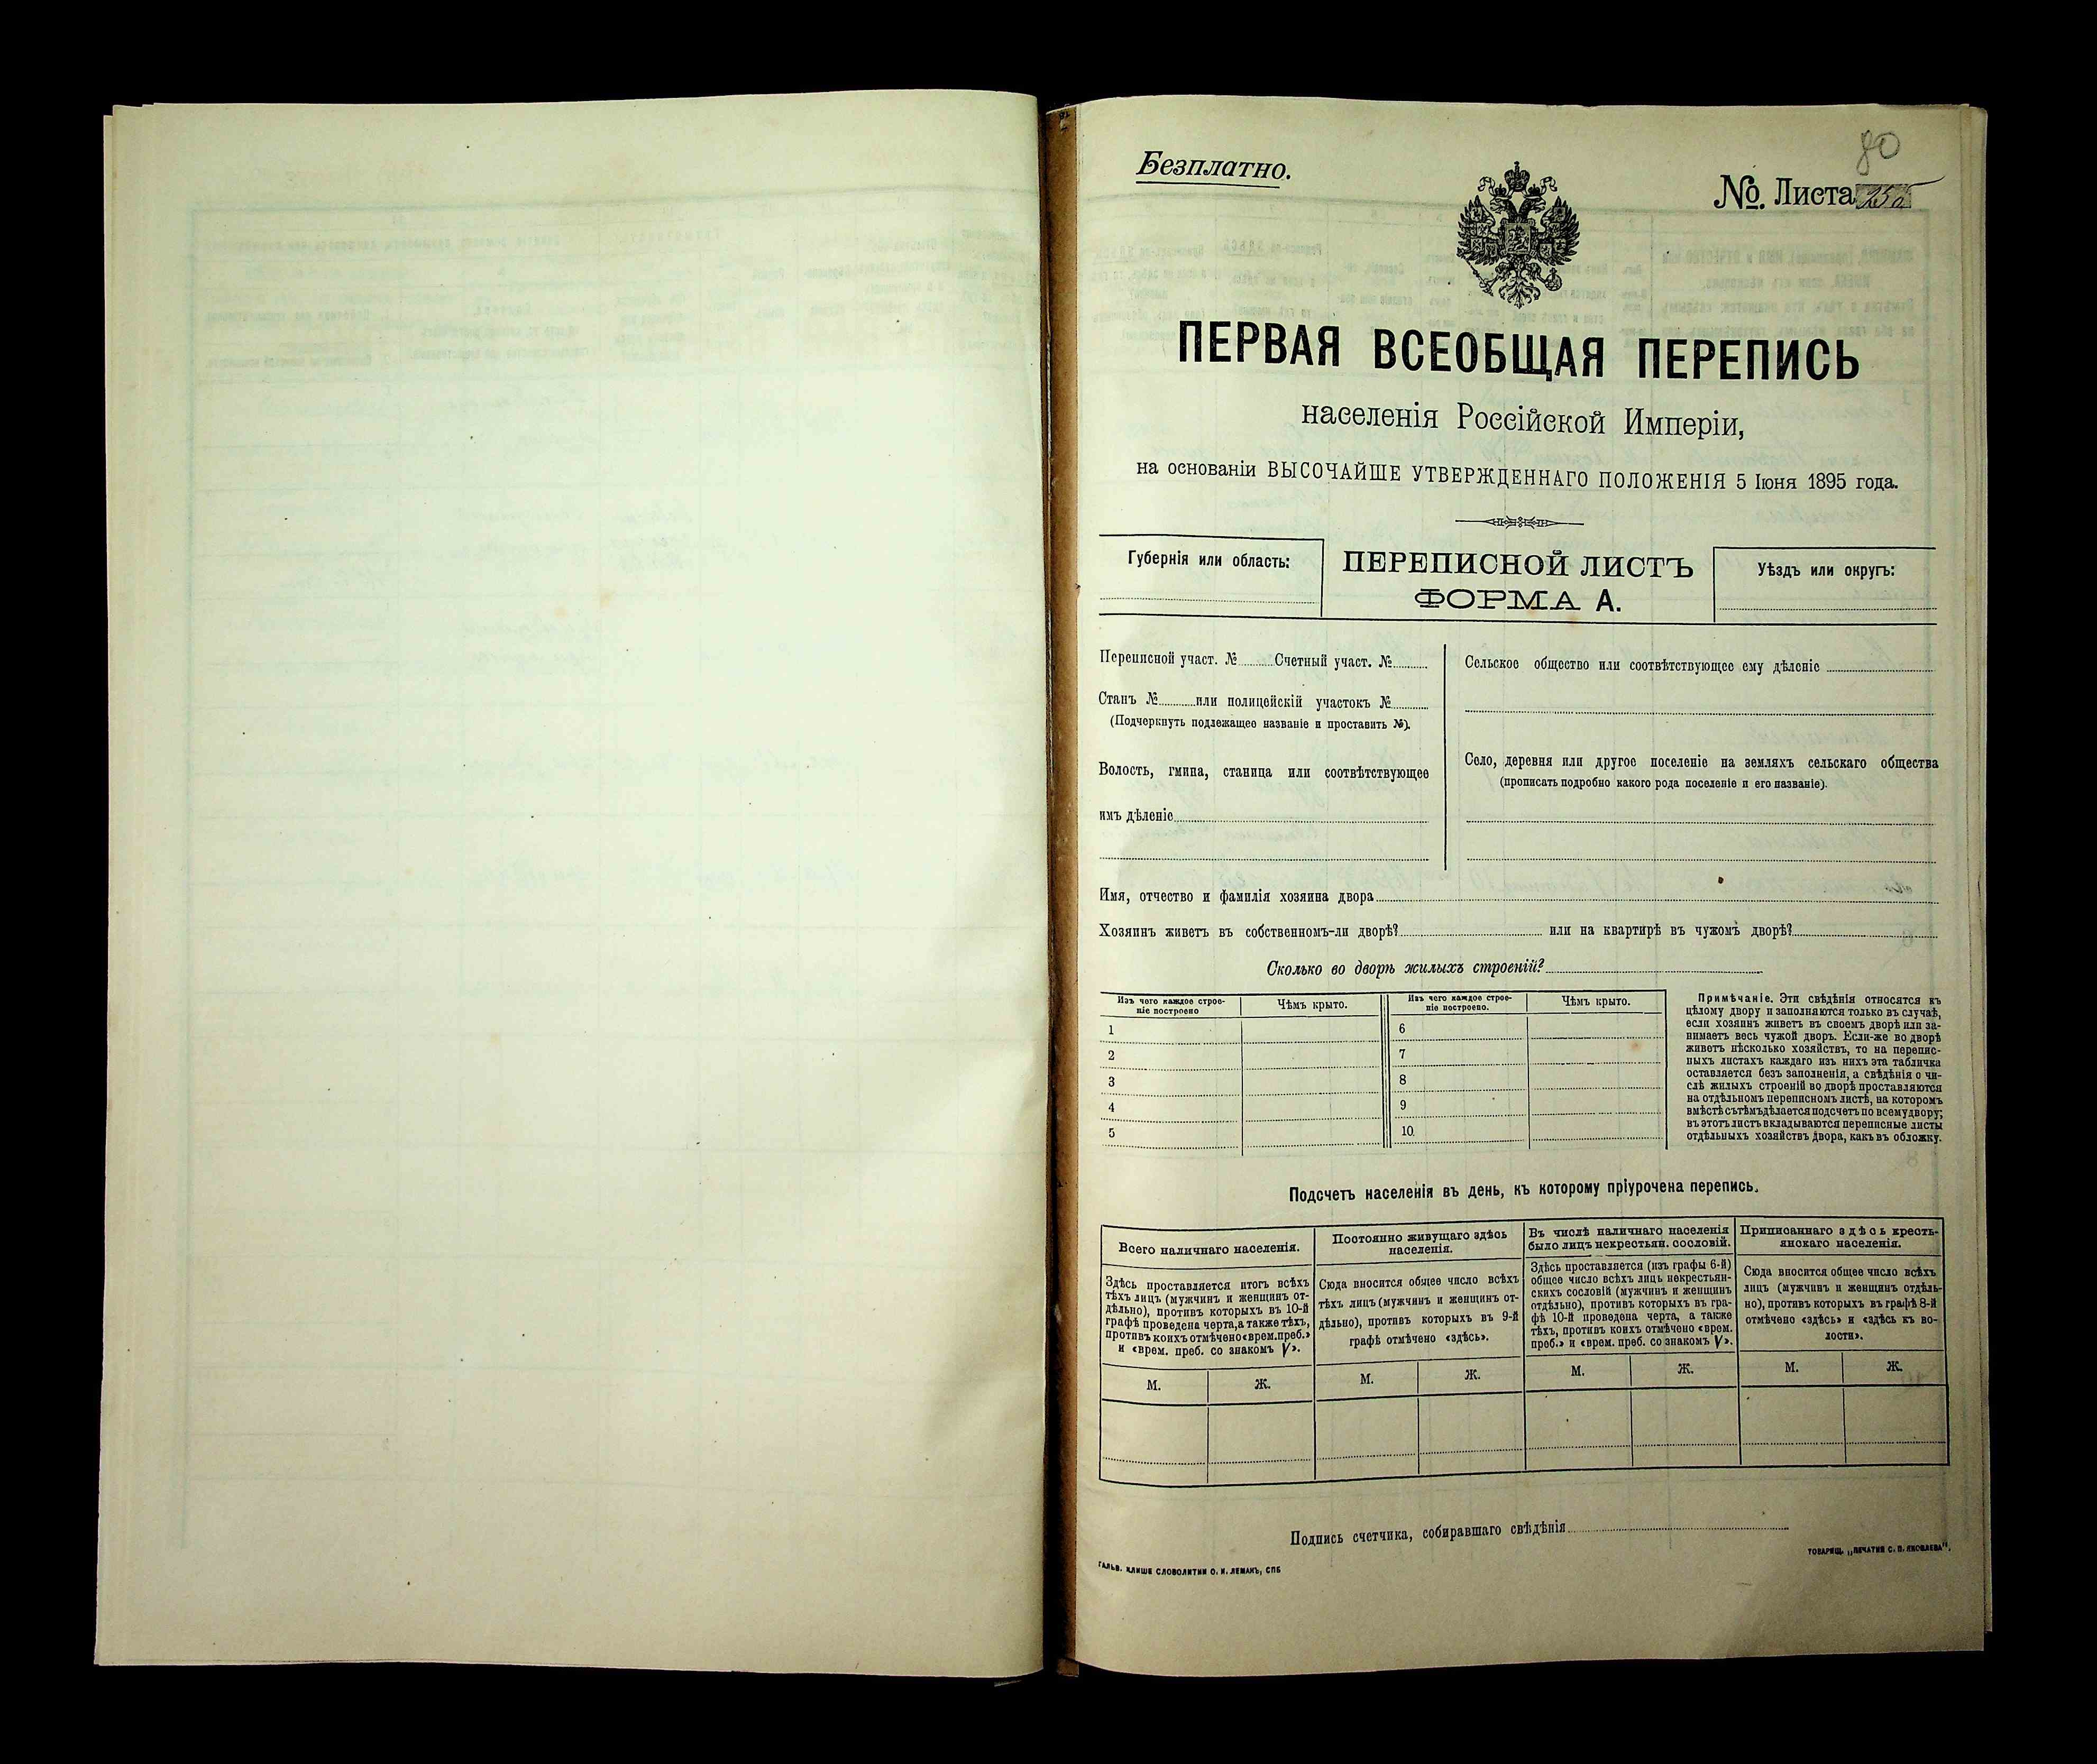 80
Безплатно.
№. Листа
ПЕРВАЯ ВСЕОБЩАЯ ПЕРЕПИСЬ
населенія Россійской Имперіи,
на основаніи ВЫСОЧАЙШЕ УТВЕРЖДЕННАГО ПОЛОЖЕНІЯ 5 Іюня 1895 года.
Губернія или область:
ПЕРЕПИСНОЙ ЛИСТЪ
ФОРМА А.
Уѣздъ или округъ:
Переписной участ. № Счетный участ. №
Станъ № или полицейскій участокъ №
(Подчеркнуть подлежащее названіе и проставить №).
Волость, гмина, станица или соотвѣтствующее
имъ дѣленіе
Сельское общество или соотвѣтствующее ему дѣленіе
Село, деревня или другое поселеніе на земляхъ сельскаго общества
(прописать подробно какого рода поселеніе и его названіе).
Имя, отчество и фамилія хозяина двора
Хозяинъ живетъ въ собственномъ-ли дворѣ? или на квартирѣ въ чужомъ дворѣ?
Сколько во дворѣ жилыхъ строеній?
Изъ чего каждое строе-
ніе построено
Чѣмъ крыто.
Изъ чего каждое строе-
ніе построено.
Чѣмъ крыто.
1
2
3
4
5
6
7
8
9
10.
Примѣчаніе. Эти свѣдѣнія относятся къ
цѣлому двору и заполняются только въ случаѣ,
если хозяинъ живетъ въ своемъ дворѣ или за-
нимаетъ весь чужой дворъ. Если-же во дворѣ
живетъ нѣсколько хозяйствъ, то на перепис-
ныхъ листахъ каждаго изъ нихъ эта табличка
оставляется безъ заполненія, а свѣдѣнія о чи-
слѣ жилыхъ строеній во дворѣ проставляются
на отдѣльномъ переписномъ листѣ, на которомъ
вмѣстѣ съ тѣмъ дѣлается подсчетъ по всему двору;
въ этотъ листъ вкладываются переписные листы
отдѣльныхъ хозяйствъ двора, какъ въ обложку.
Подсчетъ населенія въ день, къ которому пріурочена перепись.
Всего наличнаго населенія.
Здѣсь проставляется итогъ всѣхъ
тѣхъ лицъ (мужчинъ и женщинъ от-
дѣльно), противъ которыхъ въ 10-й
графѣ проведена черта, а также тѣхъ,
противъ коихъ отмѣчено «врем. преб.»
и «врем. преб. со знакомъ V».
М. Ж.
Постоянно живущаго здѣсь
населенія.
Сюда вносится общее число всѣхъ
тѣхъ лицъ (мужчинъ и женщинъ от-
дѣльно), противъ которыхъ въ 9-й
графѣ отмѣчено «здѣсь».
М. Ж.
Въ числѣ наличнаго населенія
было лицъ некрестьян. сословій.
Здѣсь проставляется (изъ графы 6-й)
общее число всѣхъ лицъ некрестьян-
скихъ сословій (мужчинъ и женщинъ
отдѣльно), противъ которыхъ въ гра-
фѣ 10-й проведена черта, а также
тѣхъ, противъ коихъ отмѣчено «врем.
преб.» и «врем. преб. со знакомъ V».
М. Ж.
Приписаннаго здѣсь кресть-
янскаго населенія.
Сюда вносится общее число всѣхъ
лицъ (мужчинъ и женщинъ отдѣль-
но), противъ которыхъ въ графѣ 8-й
отмѣчено «здѣсь» и «здѣсь къ во-
лости».
М. Ж.
Подпись счетчика, собиравшаго свѣдѣнія
ГАЛЬВ. КЛИШЕ СЛОВОЛИТНИ О. И. ЛЕМАНЪ, СПБ
ТОВАРИЩ. „ПЕЧАТНЯ С. П. ЯКОВЛЕВА“.